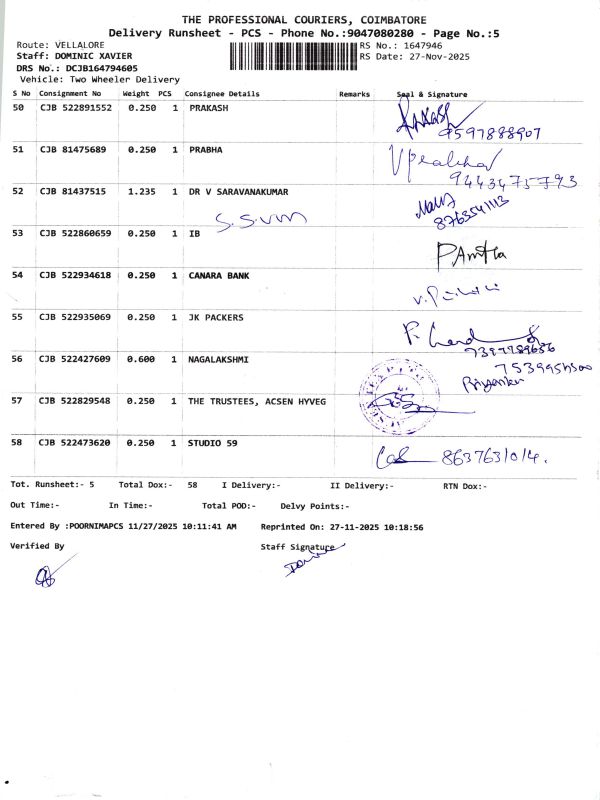 THE PROFESSIONAL COURIERS, COIMBATORE
Delivery Runsheet - PCS - Phone No.:9047080280 - Page No.:5
Route: VELLALORE RS No.: 1647946
Staff: DOMINIC XAVIER RS Date: 27-Nov-2025
DRS No.: DCJB164794605
Vehicle: Two Wheeler Delivery
S No Consignment No Weight PCS Consignee Details Remarks Seal & Signature
50 CJB 522891552 0.250 1 PRAKASH
9597888907
51 CJB 81475689 0.250 1 PRABHA V Prabha
9443475793
52 CJB 81437515 1.235 1 DR V SARAVANAKUMAR
8763541113
S.S.VM
53 CJB 522860659 0.250 1 IB
54 CJB 522934618 0.250 1 CANARA BANK
55 CJB 522935069 0.250 1 JK PACKERS
56 CJB 522427609 0.600 1 NAGALAKSHMI
Priyanka
57 CJB 522829548 0.250 1 THE TRUSTEES, ACSEN HYVEG
58 CJB 522473620 0.250 1 STUDIO 59
8637631014.
Tot. Runsheet:- 5 Total Dox:- 58 I Delivery:- II Delivery:- RTN Dox:-
Out Time:- In Time:- Total POD:- Delvy Points:-
Entered By :POORNIMAPCS 11/27/2025 10:11:41 AM Reprinted On: 27-11-2025 10:18:56
Verified By Staff Signature